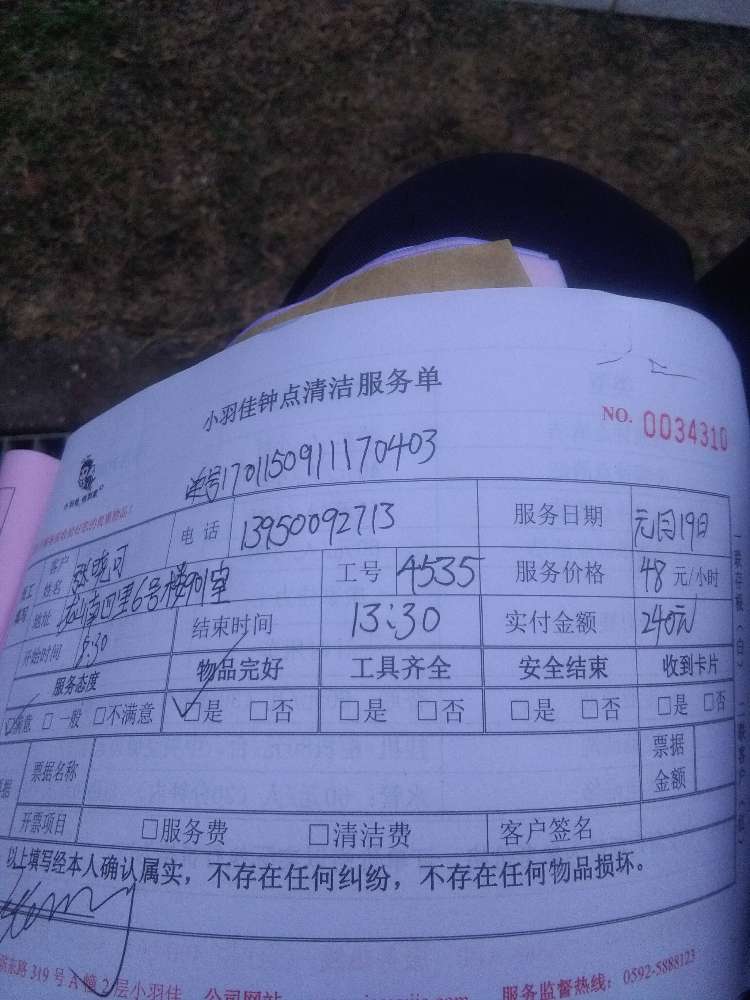 小羽佳钟点清洁服务单
NO. 0034310
单号170115091117 0403
客户姓名 张晓可 电话 13950092713 服务日期 元月19日
地址 里6号楼901室 工号 4535 服务价格 48元/小时
开始时间 8:30 结束时间 13:30 实付金额 240元
服务态度 物品完好 工具齐全 安全结束 收到卡片
☑满意 □一般 □不满意 ☑是 □否 □是 □否 □是 □否 □是 □否
票据名称 票据金额
开票项目 □服务费 □清洁费 客户签名
以上填写经本人确认属实，不存在任何纠纷，不存在任何物品损坏。
东路319号A幢2层小羽佳 公司网站 服务监督热线：0592-5888123